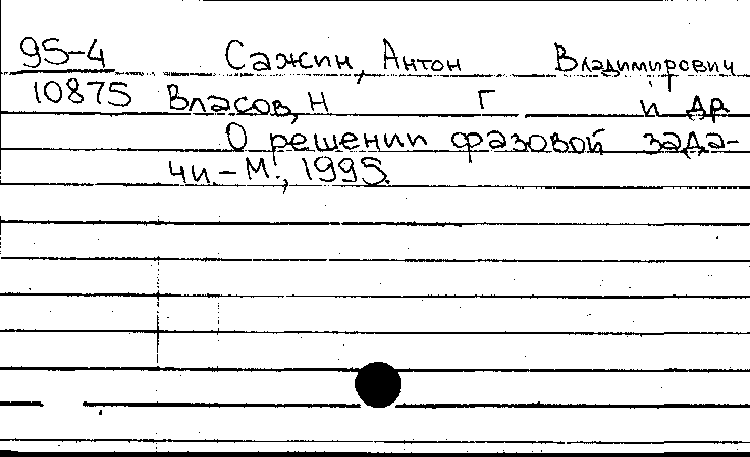 95-4 Сажин, Антон Владимирович
10875 Власов, Н Г и др
О решении фазовой зада-
чи. - М., 1995.